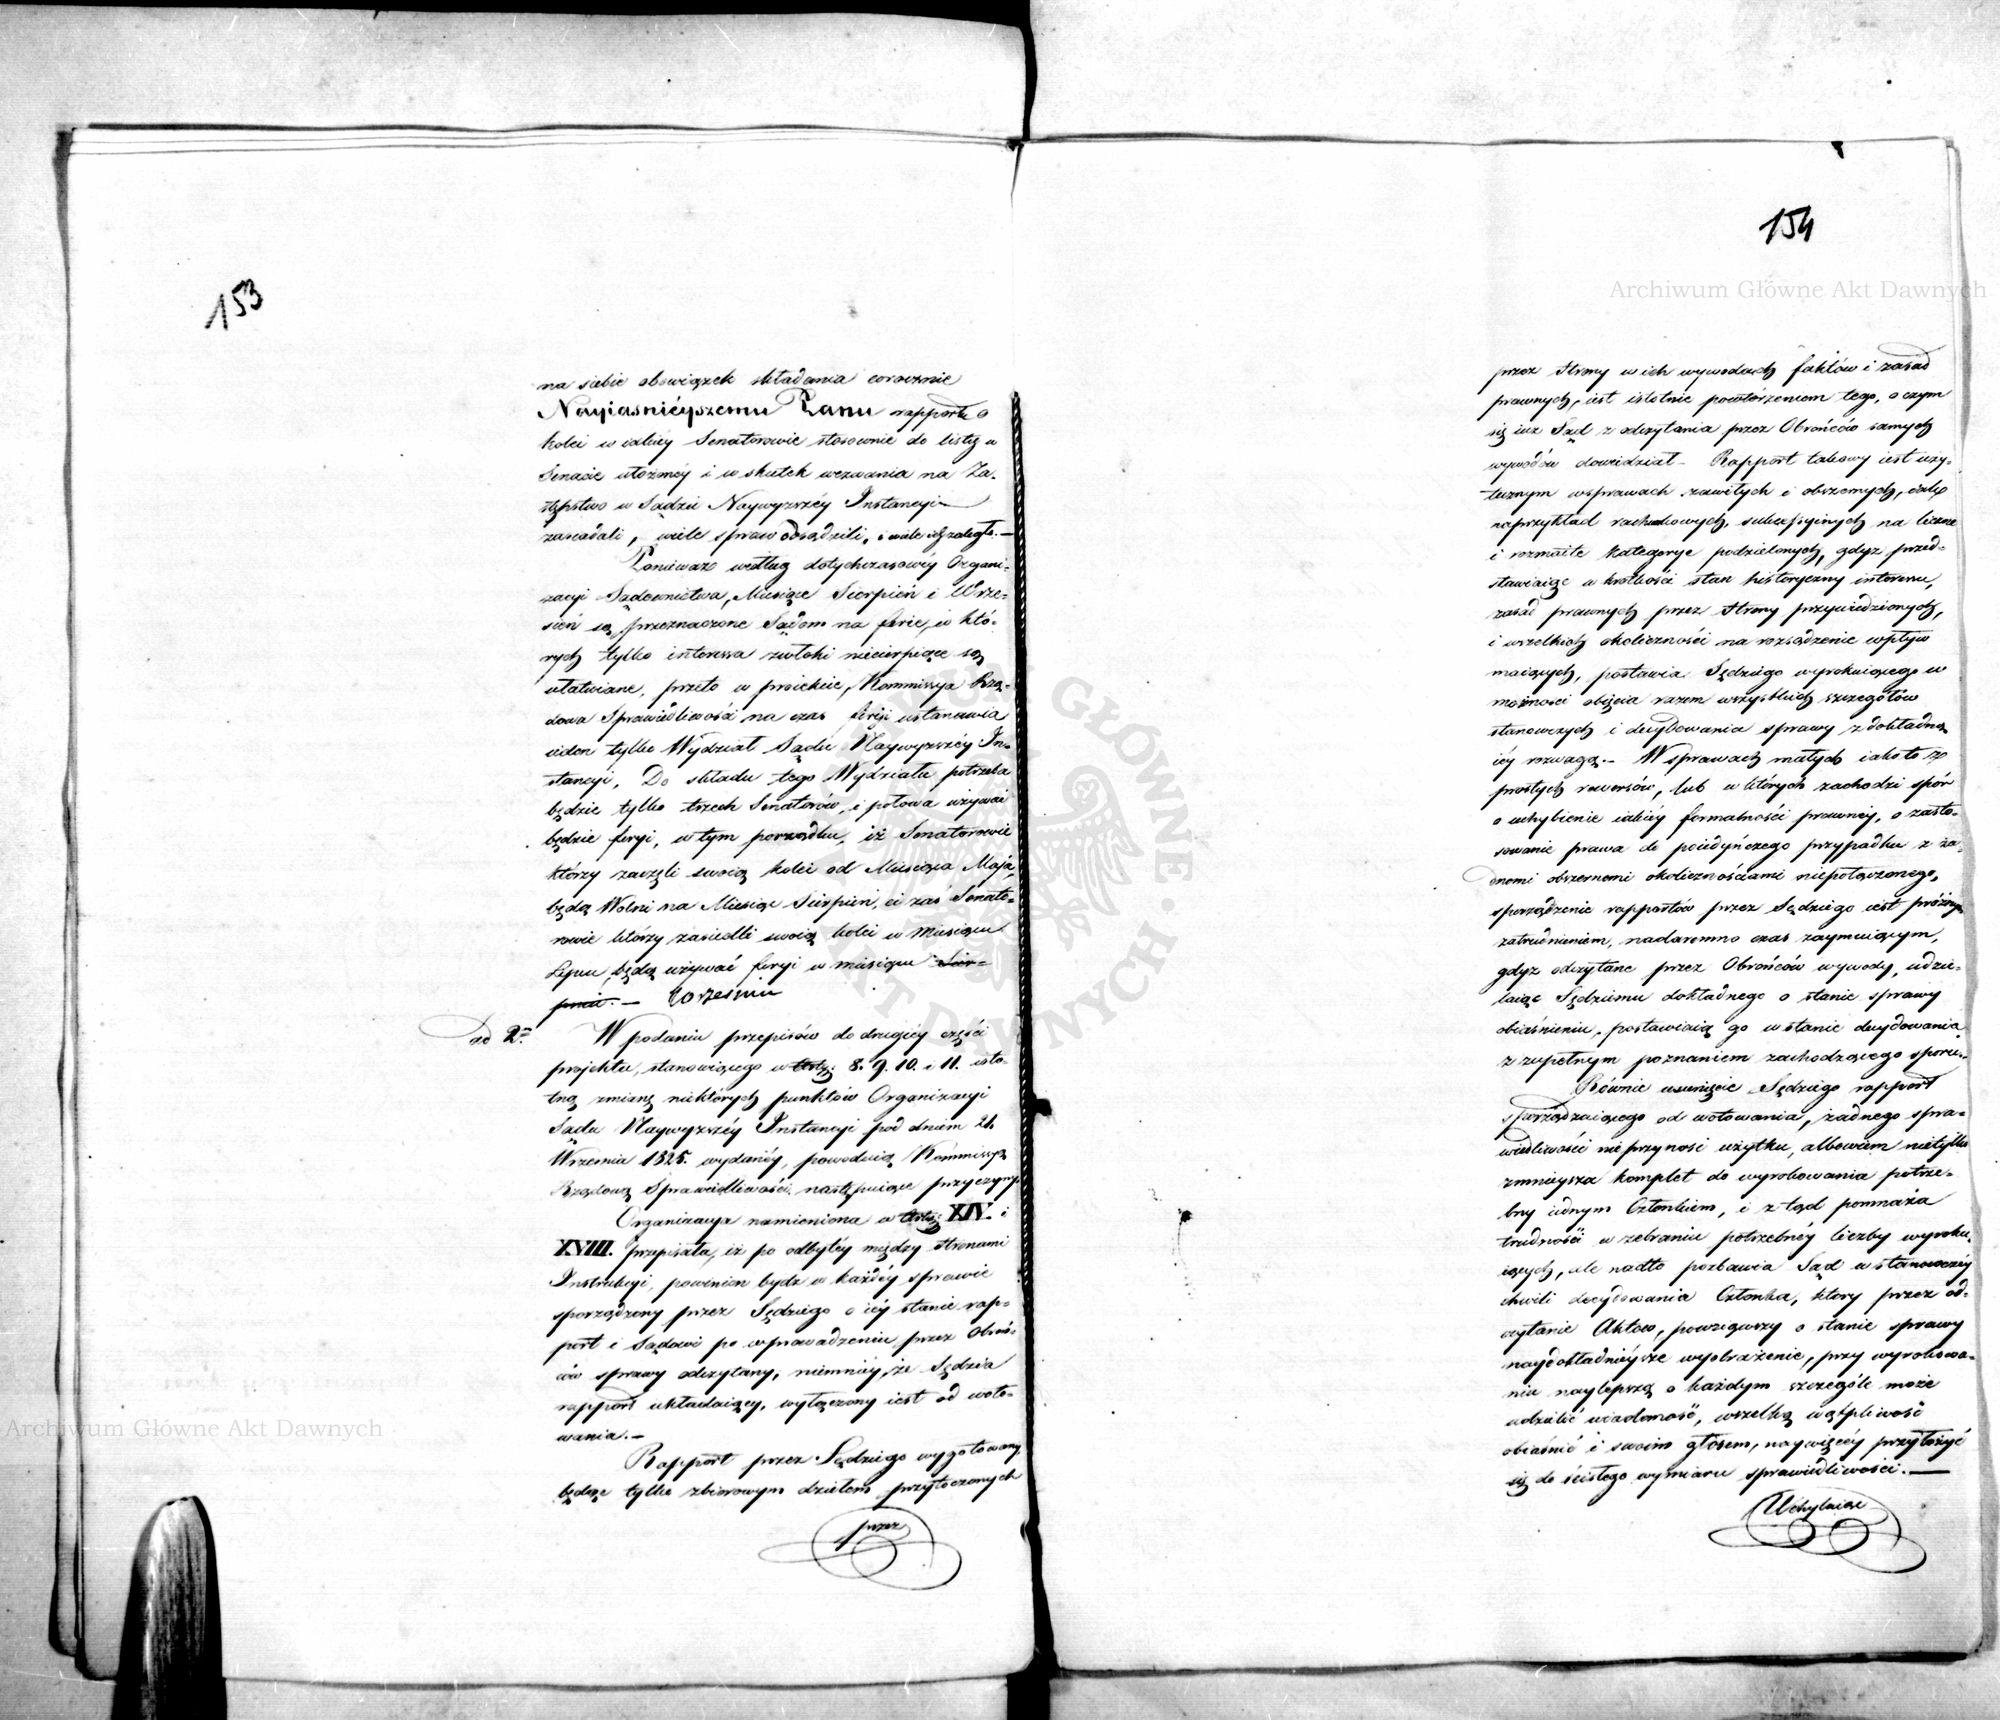 153
na siebie obowiązek składania corocznie
Nayiaśnieyszemu Panu rapportu o
kolei w iakiey Senatorowie stosownie do listy w
Senacie ułożoney i w skutek wezwania na Za-
stępstwo w Sądzie Naywyższéy Instancyi
zasiadali, wiele spraw osądzili, i wiele ich zaległo. —
Ponieważ według dotychczasowéy Organi-
zacyi Sądownictwa, Miesiące Sierpień i Wrze-
sień są przeznaczone Sądom na ferie, w któ-
rych tylko interessa zwłoki niecierpiące są
ułatwiane, przeto w proiekcie, Kommissya Rzą-
dowa Sprawiedliwości na czas feryi ustanawia
ieden tylko Wydział Sądu Naywyższéy In-
stancyi. Do składu tego Wydziału potrzeba
będzie tylko trzech Senatorów, i połowa używać
będzie feryi, w tym porządku, iż Senatorowie
którzy zaczęli swoią kolei od Miesiąca Maja,
będą Wolni na Miesiąc Sierpień, ci zaś Senato-
rowie którzy zasiedli swoią kolei w Miesiącu
Lipcu będą używać feryi w miesiącu Sier-
pniu. — Wrześniu
ad 2m. W podaniu przepisów do drugiéy części
projektu, stanowiącego w Arty: 8. 9. 10. i 11. isto-
tną zmianę niektórych punktów Organizacyi
Sądu Naywyższéy Instancyi pod dniem 21.
Września 1825. wydanéy, powoduią Kommissyą
Rządową Sprawiedliwości następuiące przyczyny.
Organizacya namieniona w Arty: XIV. i
XVIII. przepisała, iż po odbytéy między stronami
Instrukcyi, powinien bydź w każdéy sprawie
sporządzony przez Sędziego o iéy stanie rap-
port i Sądowi po wprowadzeniu przez Obroń-
ców sprawy odczytany, niemniéy, że Sędzia
rapport układaiący, wyłączony iest od woto-
wania. —
Rapport przez Sędziego wygotowany
będąc tylko zbiorowym dziełem przytoczonych
przez
154
przez Strony w ich wywodach faktów i zasad
prawnych, iest istotnie powtórzeniem tego, o czym
się iuż Sąd z odczytania przez Obrońców samych
wywodów dowiedział — Rapport takowy iest uży-
tecznym w sprawach zawiłych i obszernych, iako
naprzykład rachunkowych, sukcessyinych na liczne
i rozmaite kategorye podzielonych, gdyż przed-
stawiaiąc w krótkości stan historyczny interessu,
zasad prawnych przez Strony przywiedzionych,
i wszelkich okoliczności na rozsądzenie wpływ
maiących, postawia Sędziego wyrokuiącego w
możności obięcia razem wszystkich szczegółów
stanowczych i decydowania sprawy z dokładną
iéy rozwagą. — W sprawach małych iako to z
prostych rewersów, lub w których zachodzi spór
o uchybienie iakiéy formalności prawnéy, o zasto-
sowanie prawa do poiedyńczego przypadku z ża-
dnemi obszernemi okolicznościami niepołączonego,
sporządzenie rapportów przez Sędziego iest próżnym
zatrudnieniem, nadaremno czas zaymuiącym,
gdyż odczytane przez Obrońców wywody, udzie-
laiąc Sędziemu dokładnego o stanie sprawy
obiaśnieniu, postawiaią go w stanie decydowania
z zupełnym poznaniem zachodzącego sporu. —
Równie usunięcie Sędziego rapport
sporządzaiącego od wotowania, żadnego spra-
wiedliwości nie przynosi użytku, albowiem nietylko
zmnieysza komplet do wyrokowania potrze-
bny iednym Członkiem, i z tąd pomnaża
trudności w zebraniu potrzebnéy liczby wyroku-
iących, ale nadto pozbawia Sąd w stanowczéy
chwili decydowania Członka, który przez od-
czytanie Aktów, powziąwszy o stanie sprawy
naydokładnieysze wyobrażenie, przy wyrokowa-
niu naylepszą o każdym szczególe może
udzielić wiadomość, wszelką wątpliwość
obiaśnić i swoim głosem, naywięcéy przyłożyć
się do ścisłego wymiaru sprawiedliwości. —
Uchylaiąc
Archiwum Główne Akt Dawnych
Archiwum Główne Akt Dawnych